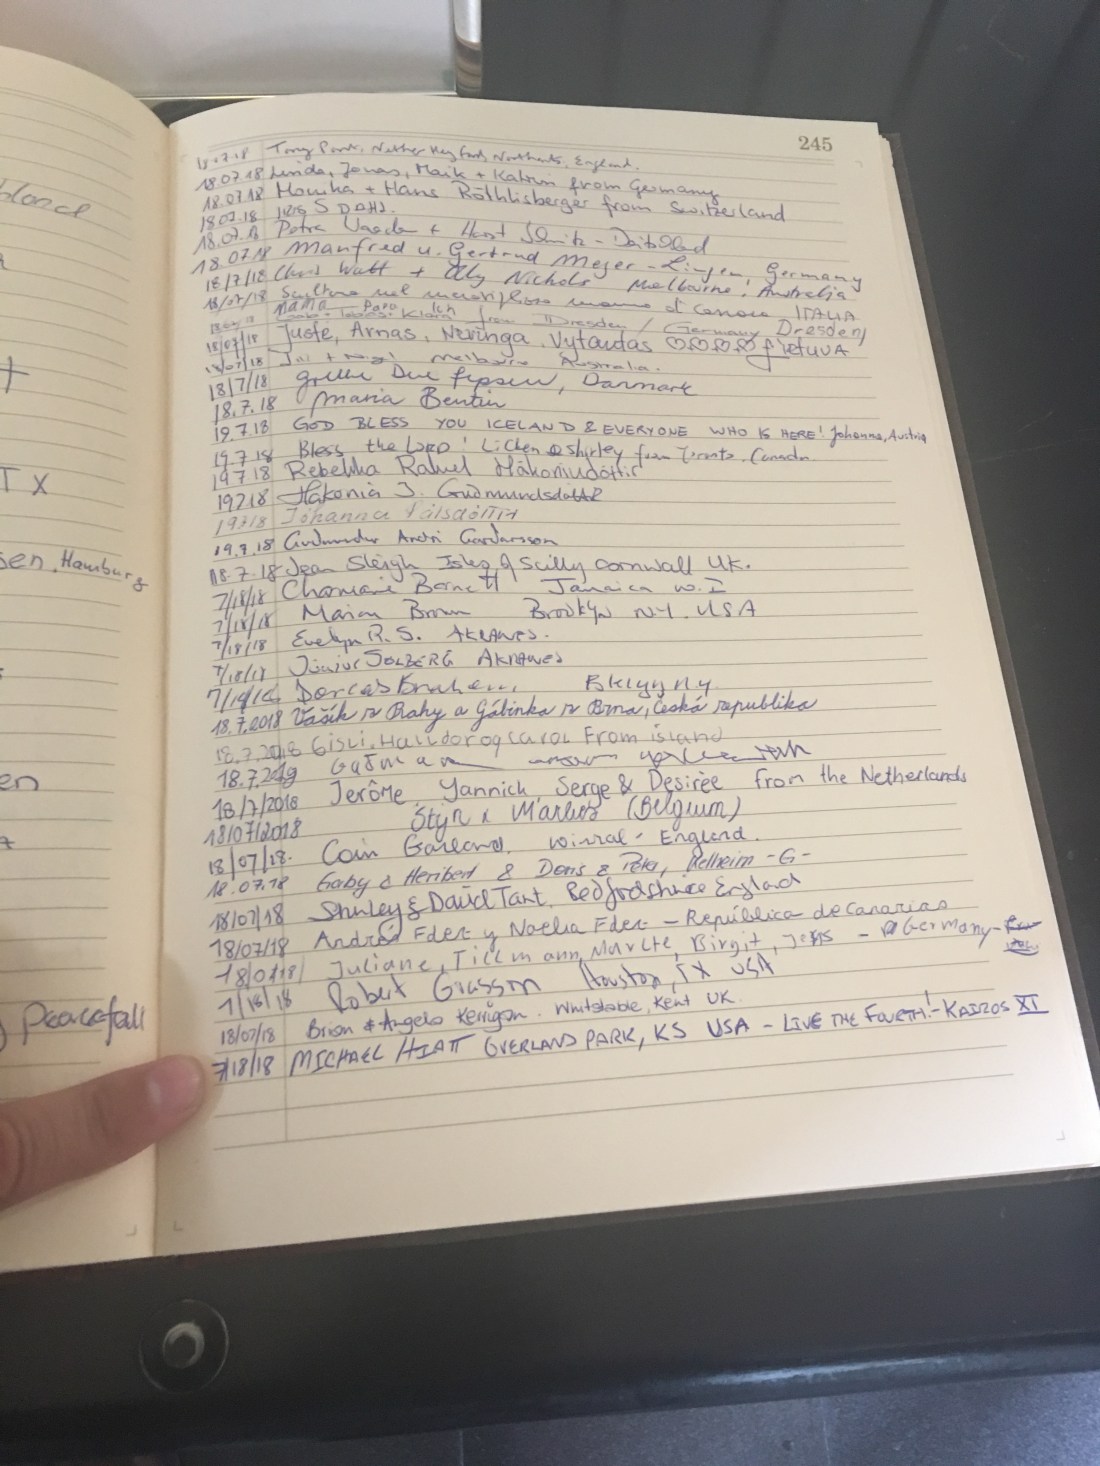 245
18.07.18 Tony Park, Nether Heyford, Northants, England.
18.07.18 Linda, Jonas, Maik + Katrin from Germany
18.07.18 Monika + Hans Röthlisberger from Switzerland
18.07.18
18.07.18 Petra + Horst
18.07.18 Manfred u. Gertrud Meyer - Lingen, Germany
18/7/18 Watt + Olly Nichols Melbourne, Australia
18/07/18 ITALIA
Mama Papa Ich
from Dresden / Germany Dresden
18/07/18 Juste, Arnas, Neringa, Vytautas LIETUVA
18/07/18 Melbourne Australia.
18/7/18 Grethe Due Jepsen, Danmark
18.7.18 Maria Bentin
19.7.18 GOD BLESS YOU ICELAND & EVERYONE WHO IS HERE! Johanna, Austria
19.7.18 Bless the LORD! LiChen & Shirley from Toronto, Canada
19.7.18 Rebekka Rakel Hákonudóttir
19.7.18 Hákonia J. Guðmundsdóttir
19.7.18 Jóhanna Pálsdóttir
19.7.18 Guðmundur Andri Garðarsson
18.7.18 Jean Sleigh Isles of Scilly Cornwall UK.
7/18/18 Charmaine Barnett Jamaica W.I
7/18/18 Marion Brown Brooklyn N.Y. USA
7/18/18 Evelyn R.S. AKRANES.
7/18/18 Júníus SOLBERG AKRANES
7/18/18 Dorcas Bklyn N.y.
18.7.2018 Vašík z Prahy a Gábinka z Brna, Česká republika
18.7.2018 Gisli, Halldor og Carol From island
18.7.2018
18/7/2018 Jerôme, Yannick, Serge & Desirée from the Netherlands
18/07/2018 Stijn & Marlies (Belgium)
18/07/18. Colin Garland, Wirral - England.
18.07.18 Gaby & Heribert & Doris & Peter, Kelheim -G-
18/07/18 Shirley & David Tant, Bedfordshire England
18/07/18 Andrés Eder y Noelia Eder - República de Canarias
18/07/18/ Juliane, Tillmann, Marlte, Birgit, Jens - Germany -
7/18/18 Robert Grasson Houston, TX USA
18/07/18 Brian & Angela Kerrigan. Whitstable, Kent UK.
7/18/18 MICHAEL HIATT OVERLAND PARK, KS USA - LIVE THE FOURTH! - KAIROS XI
TX
sen, Hamburg
en
Peacefall